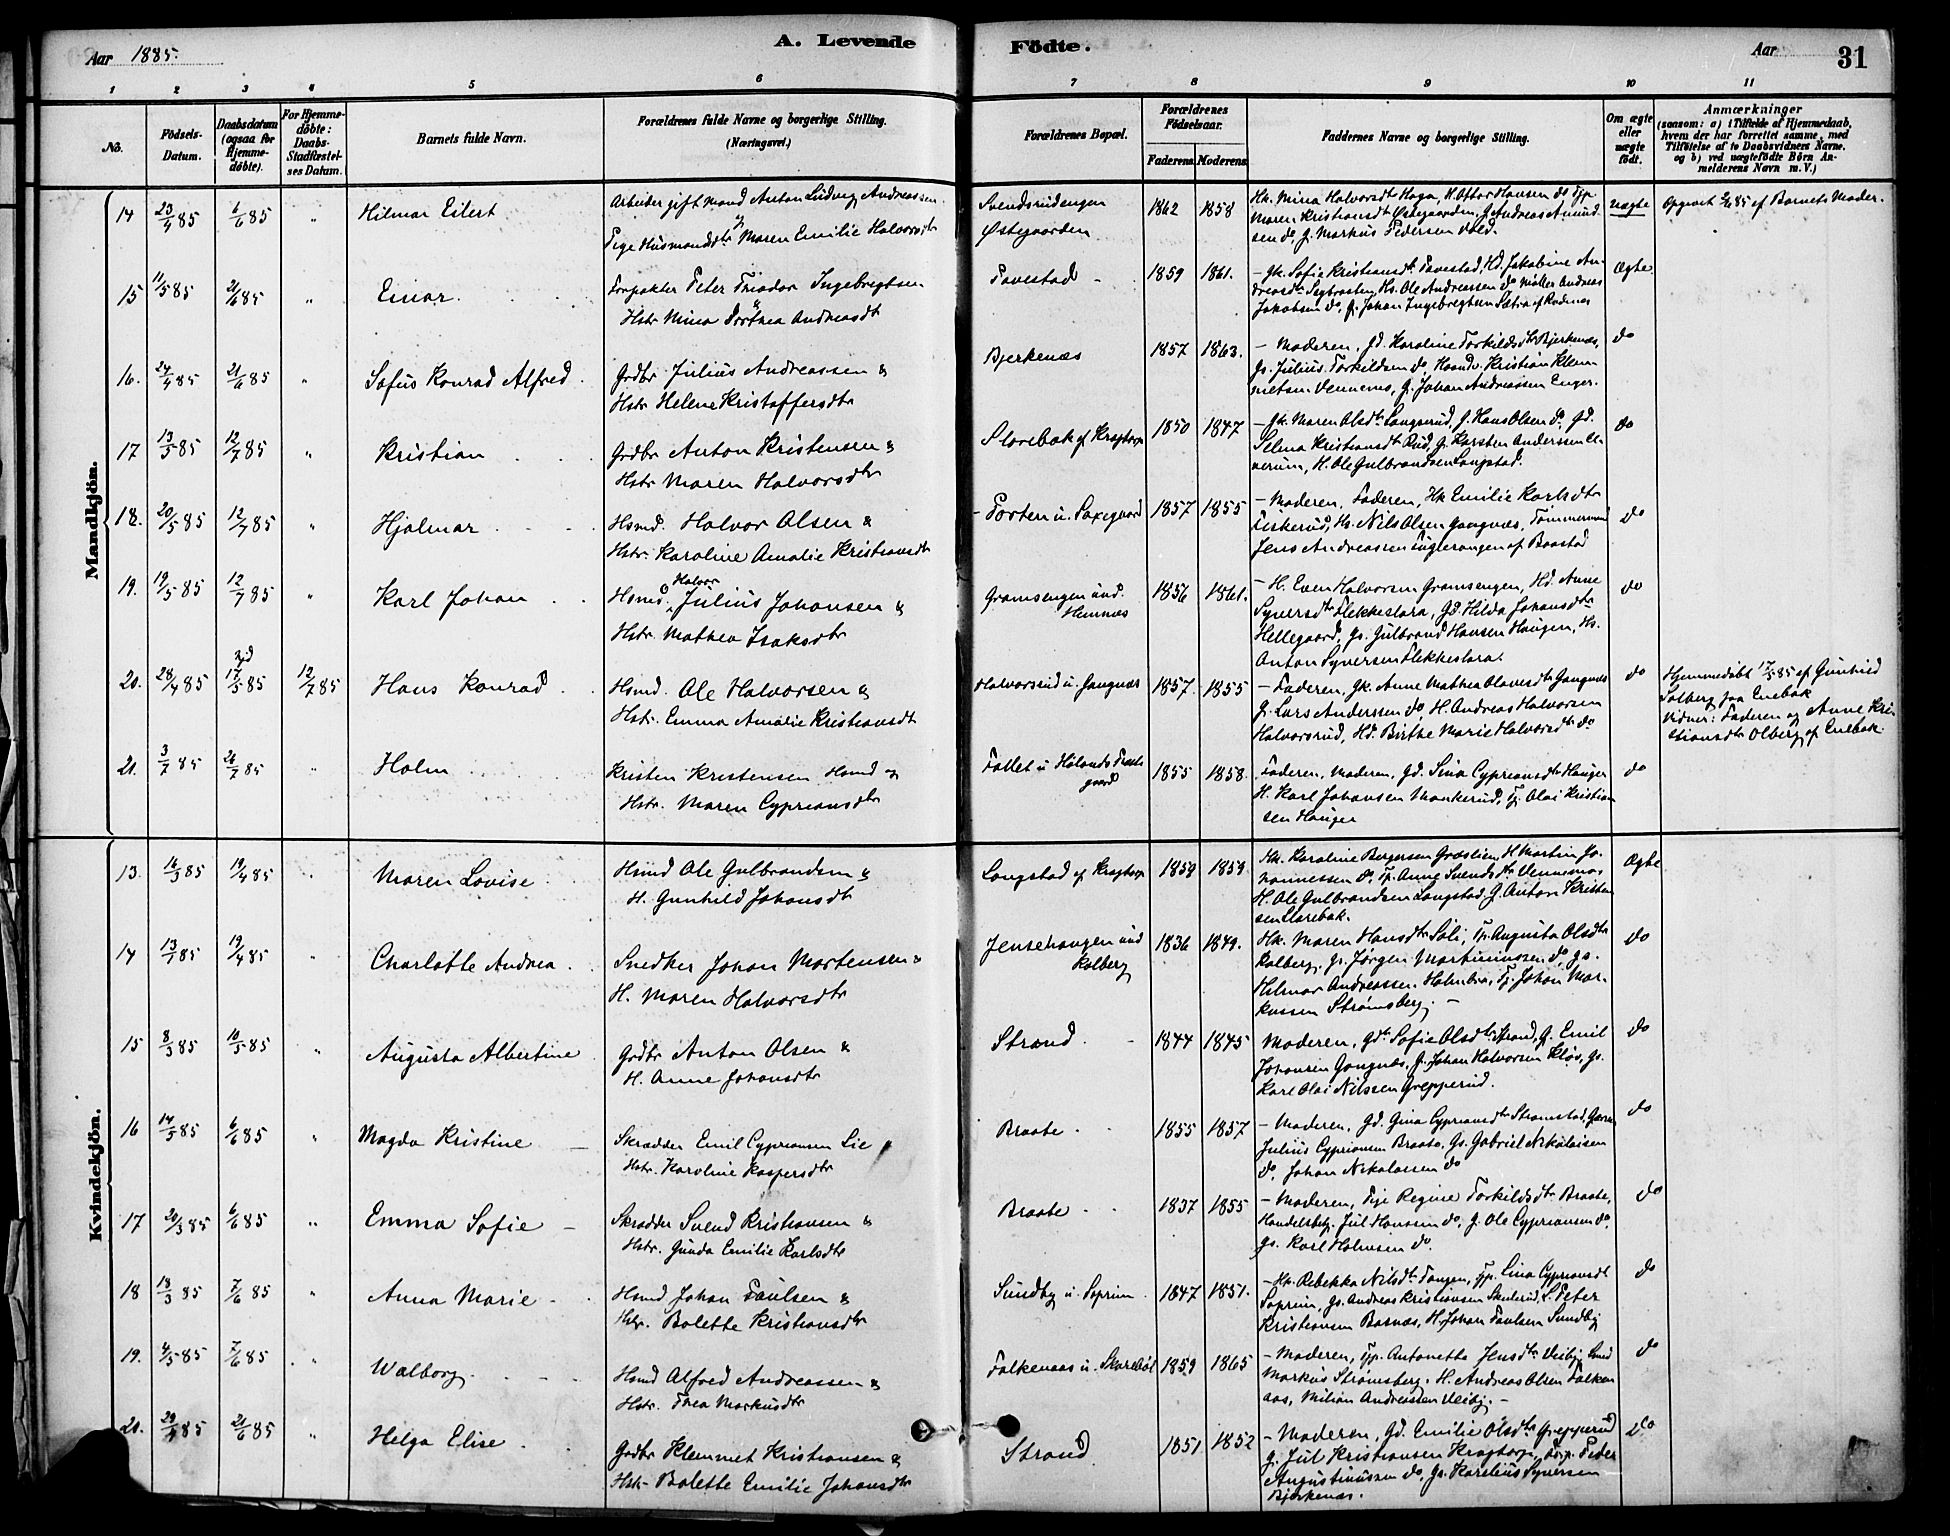 Aar 1885.
A. Levende Födte.
Aar
31
1 2 3 4 5 6 7 8 9 10 11
No.
Födsels-Datum.
Daabsdatum (ogsaa for Hjemme-döbte).
For Hjemme-döbte: Daabs-Stadfæstel-ses Datum.
Barnets fulde Navn.
Forældrenes fulde Navne og borgerlige Stilling. (Næringsvei.)
Forældrenes Bopæl.
Forældrenes Födselsaar.
Faderens. Moderens.
Faddernes Navne og borgerlige Stilling.
Om ægte eller uægte födt.
Anmærkninger
(saasom: a) i Tilfælde af Hjemmedaab,
hvem der har forrettet samme, med
Tilföielse af to Daabsvidners Navne,
og b) ved uægtefödte Börn An-
melderens Navn m. V.)
Mandkjön.
14 23/4 85 6/6 85 " Hilmar Eilert
Arbeider gift Mand Anton Ludvig Andreassen
Pige Husmandsdtr Maren Emilie Halvorsdtr
Svendsrudengen
Østegaarden
1862 1858
Hk. Mina Halvorsdtr Haga, H. Ottar Hansen do Tp.
Maren Kristiansdtr Østegaarden, G. Andreas Amund
sen do, G. Markus Pedersen
uægte
Opgivet 6/6 85 af Barnets Moder.
15 11/5 85 21/6 85 " Einar
Forpakter Peter Triador Ingebregtsen
Hstr Mina Dorthea Andreasdt
Tavestad
1859 1861.
Gk. Sofie Kristiansdtr Tavestad, Hd. Jakobine An-
dreasdtr, Hs. Ole Andreassen do Møller Andreas
Jakobsen do, G. Johan Ingebregtsen Sætra af Rødenes
Ægte
16. 24/4 85 21/6 85 " Sofus Konrad Alfred
Grdbr Julius Andreassen &
Hstr Helene Kristoffersdtr
Bjerkenæs
1857 1863.
Moderen, Gd. Karoline Torkildsdtr Bjerkenæs,
Gs. Julius Torkildsen do, Kristian Klem
metsen Vennemo, G. Johan Andreassen Enger.
do
17 13/5 85 12/7 85 " Kristian
Grdbr Anton Kristensen &
Hstr Maren Halvorsdtr
Slorebak af Kragtorp
1850 1847
Gk. Maren Olsdtr Langsrud, G. Hans Olsen do, Gd.
Selma Kristiansdtr Rud, G. Karsten Anderssen El-
verum, H. Ole Gulbrandsen Langstad.
do
18. 20/5 85 12/7 85 " Hjalmar
Hsmd. Halvor Olsen &
Hstr. Karoline Amalie Kristiansdtr
Porten u. Saxegaard
1857 1855
Moderen, Faderen, Hk Emilie Karlsdtr
Fiskerud, Hs. Nils Olsen Gangnæs, Tømmermand
Jens Andreassen Fuglerangen af Baastad
do
19. 19/5 85 12/7 85 " Karl Johan
Hsmd. Halvor Julius Johansen &
Hstr. Mathea Isaksdtr
Gramsengen und. Hemnæs
1836 1861.
H. Even Halvorsen Gramsengen, Hd. Anne
Syversdtr Flekkeslara, Gd. Hilda Johansdtr
Hellegaard, Gs. Gulbrand Hansen Haugen, Hs.
Anton Syversen Flekkeslara.
do
20. 28/4 85 17/5 85 12/7 85 Hans Konrad
Hsmd. Ole Halvorsen &
Hstr. Emma Amalie Kristiansdt
Halvorsrud u. Gangnæs
1857 1855
Faderen, Gk. Anne Mathea Olavesdtr Gangnæs
G. Lars Anderssen do, H. Andreas Halvorsen
Halvorsrud, Hd. Birthe Marie Halvorsdtr do
do
Hjemmedøbt 17/5 85 af Gunhild
Solberg fra Enebak
Vidner: Faderen og Anne Kri-
stiansdtr Olberg af Enebak.
21. 3/7 85 26/7 85 " Holm
Kristen Kristensen Hsmd og
Hstr. Maren Cypriansdtr
Fallet u Hølands Præste
gaard
1855 1858.
Faderen, Moderen, Gd. Sina Cypriansdtr Hauger
H. Karl Johansen Mankerud, Tj. Olai Kristian
sen Hauger
do
Kvindekjön.
13. 16/3 85 19/4 85 " Maren Lovise
Hsmd Ole Gulbrandsen &
H. Gunhild Johansdtr
Langstad af Kragtorp
1859 1859
Hk. Karoline Bergersen Græslien, H. Martin Jo-
hannessen do, Tp. Anne Svendsdtr Vennemo
H. Ole Gulbrandsen Langstad, G. Anton Kristen
sen Slorebak.
Ægte
14 13/1 85 19/4 85 " Charlotte Andrea
Snedker Johan Mortensen &
H. Maren Halvorsdtr
Jensehaugen und
Kolberg
1836 1849.
Hk. Maren Hansdtr Sali, Tp. Augusta Olsdtr
Kolberg, Gs. Jørgen Martiniussen do Gs.
Hilmar Andreassen Holmbro, Tj. Johan Mar-
kussen Strømsberg.
do
15 8/3 85 10/5 85 " Augusta Albertine
Grdbr Anton Olsen &
H. Anne Johansdtr
Strand
1844 1845
Moderen, Gdtr Sofie Olsdtr Strand, G. Emil
Johansen Gangnæs, G. Johan Halvorsen Kløv, Gs.
Karl Olai Nilssen Grepperud.
do
16 14/5 85 6/6 85 " Magda Kristine
Skrædder Emil Cypriansen Lie
Hstr. Karoline Kaspersdtr
Braate
1855 1857
Moderen, Gd. Gina Cypriansdtr Strømstad,
Julius Cypriansen Braate, Gs. Gabriel Nikolaisen
do, Johan Nikolaisen do
do
17 20/3 85 6/6 85 " Emma Sofie
Skrædder Svend Kristiansen &
Hstr. Gunda Emilie Karlsdtr
Braate
1837 1855
Moderen, Pige Regine Torkildsdtr Braate,
Handelsbtj. Jul Hanssen do, G. Ole Cypriansen do,
Gs. Karl Holmsen do.
do
18 13/3 85 7/6 85 " Anna Marie
Hsmd Johan Paulsen &
Hstr. Bolette Kristiansdtr
Sundby u. Soprim
1847 1851.
Hk. Rebekka Nilsdtr Tangen, Tp. Lina Cypriansdt
Soprim, Gs. Andreas Kristiansen Skulerud, L. Peter
Kristiansen Barnæs, H. Johan Paulsen Sundby
do
19. 4/5 85 7/6 85 " Walborg
Hsmd Alfred Andreassen &
Hstr. Thea Markusdtr
Falkenaas u. Skarebøl
1859 1865
Moderen, Tp. Antonette Jensdtr Veiby, Smed
Markus Strømsberg, H. Andreas Olsen Falken
aas, Milian Andreassen Veiby.
do
20. 29/4 85 21/6 85 " Helga Elise
Grdbr Klemmet Kristiansen &
Hstr Bolette Emilie Johansdtr
Strand
1851 1852
Moderen, Gd. Emilie Olsdtr Grepperud
G. Jul Kristiansen Kragtorp, Peder
Augustinussen do, Gs. Karelius Syversen
Bjerkenæs.
do